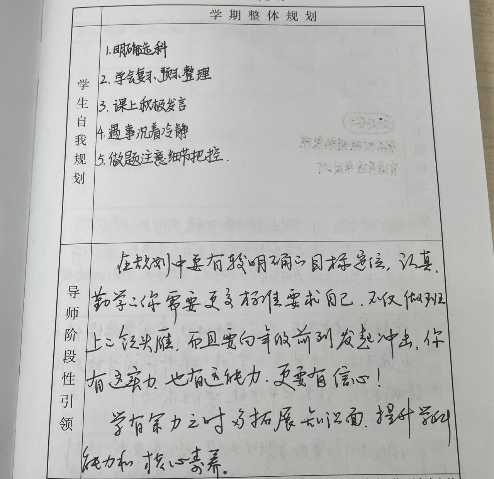 学期整体规划
学生自我规划
1.明确选科
2.学会复习、预习、整理
3.课上积极发言
4.遇事沉着冷静
5.做题注意细节把控.
导师阶段性引领
在规划中要有较明确的目标定位,认真
勤学的你需要更高标准要求自己,不仅做班
上的领头雁,而且要向年级前列发起冲击,你
有这实力,也有这能力,更要有信心!
学有余力之时多拓展知识面,提升学科
能力和核心素养。